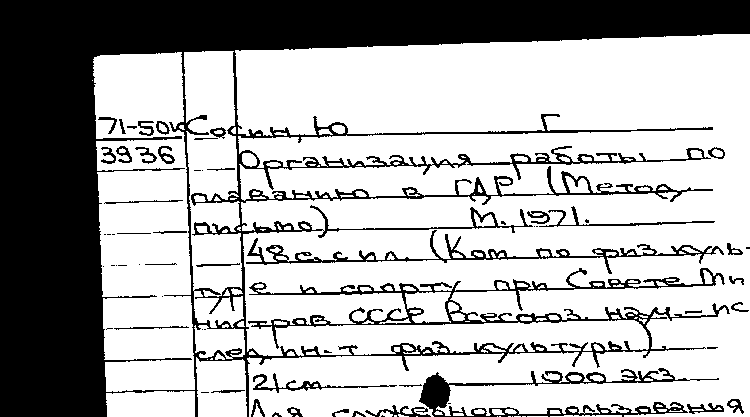 71-50к Сосин, Ю Г
3936 Организация работы по
плаванию в ГДР (Метод.
письмо) М., 1971.
48 с. с ил. (Ком. по физ. куль-
туре и спорту при Совете Ми
нистров СССР. Всесоюз. науч.-ис
след. ин-т физ. культуры).
21 см. 1000 экз.
Для служебного пользования